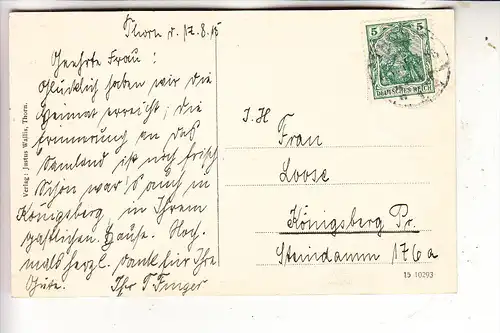 Thorn d. 17.8.15
Geehrte Frau!
Glücklich haben wir die
Heimat erreicht; die
Erinnerung an das
Samland ist noch frisch.
Schön war's auch in
Königsberg, in Ihrem
gastlichen Hause. Noch-
mals herzl. Dank für Ihre
Güte. Ihr T Finger
Verlag: Justus Wallis, Thorn.
5 5
DEUTSCHES REICH
I. H
Frau
Loose
Königsberg Pr.
Steindamm 176a
15 10293